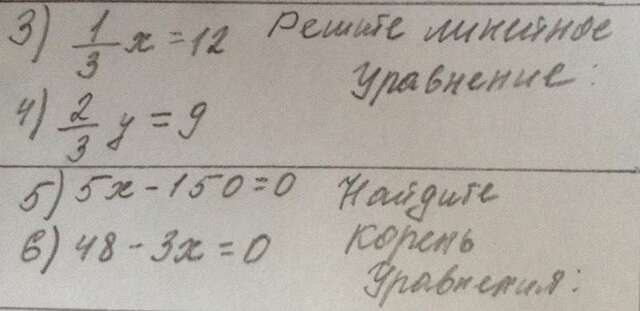 3) 1/3 x = 12 Решите линейное
уравнение:
4) 2/3 y = 9
5) 5x - 150 = 0 Найдите
6) 48 - 3x = 0 корень
уравнения: